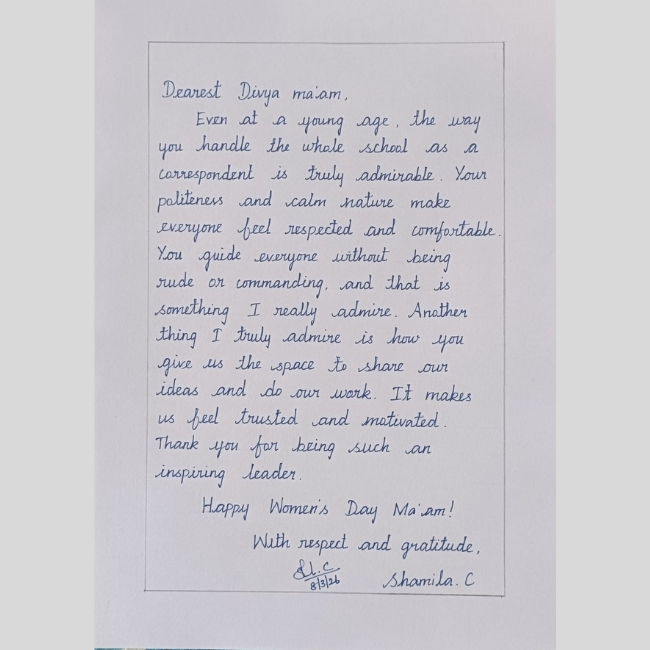 Dearest Divya ma'am,
Even at a young age, the way
you handle the whole school as a
correspondent is truly admirable. Your
politeness and calm nature make
everyone feel respected and comfortable.
You guide everyone without being
rude or commanding, and that is
something I really admire. Another
thing I truly admire is how you
give us the space to share our
ideas and do our work. It makes
us feel trusted and motivated.
Thank you for being such an
inspiring leader.
Happy Women's Day Ma'am!
With respect and gratitude,
8/3/26
Shamila. C